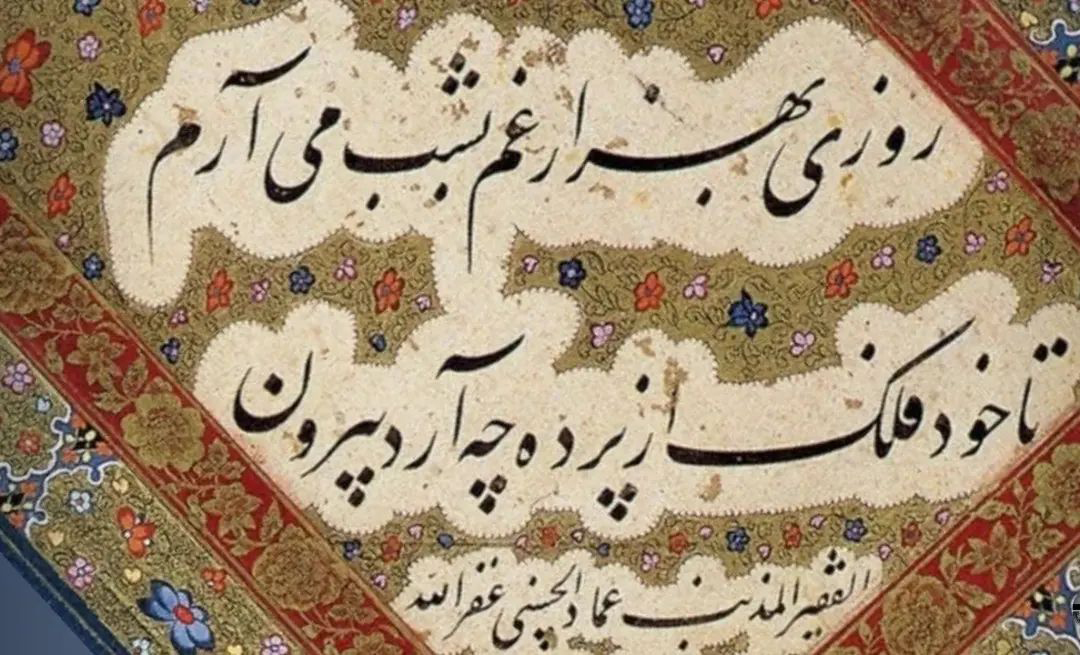 روزی بهزار غم بشب می آرم
تا خود فلک از پرده چه آرد بیرون
الفقیر المذنب عماد الحسنی غفر الله